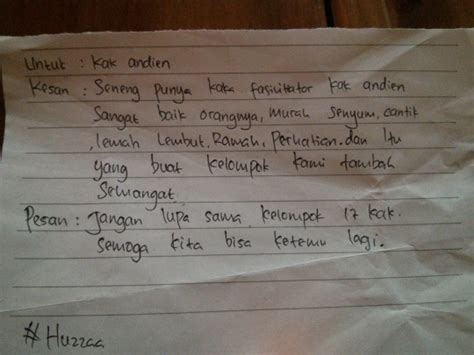 Untuk : Kak andien
Kesan : Seneng punya kaka fasilitator kak andien
Sangat baik orangnya, murah senyum, cantik
, lemah lembut, Ramah, Perhatian. dan Itu
yang buat kelompok kami tambah
Semangat
Pesan : Jangan lupa sama kelompok 17 kak.
Semoga kita bisa ketemu lagi.
#Huzzaa